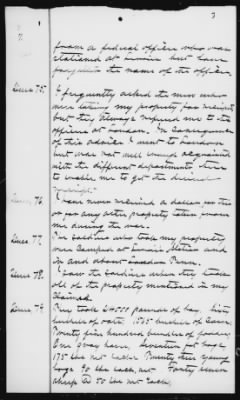 3
from a federal officer who was
stationed at
forgotten the name of the officer.
Ques 75.
I frequently asked the men who
were taking my property for receipts
but they always refered me to the
officers at London. In consequence
of this advice I went to London
but was not well enough acquainted
with the different departments there
to enable me to get the desired
receipt.
Ques 76.
I have never received a dollar for this
or for any other property taken from
me during the war.
Ques 77.
The soldiers who took my property
were
and in and about
Ques 78.
I saw the soldiers when they took
all of the property mentioned in my
claim.
Ques 79.
They took 24500 pounds of hay, fifty
bushels of oats, 1065 bushels of Corn,
Twenty five hundred bundles of fodder,
One gray horse, Seventeen fat hogs
175 lbs net each. Twenty three young
hogs 90 lbs each, net Forty seven
sheep @ 50 lbs net each,